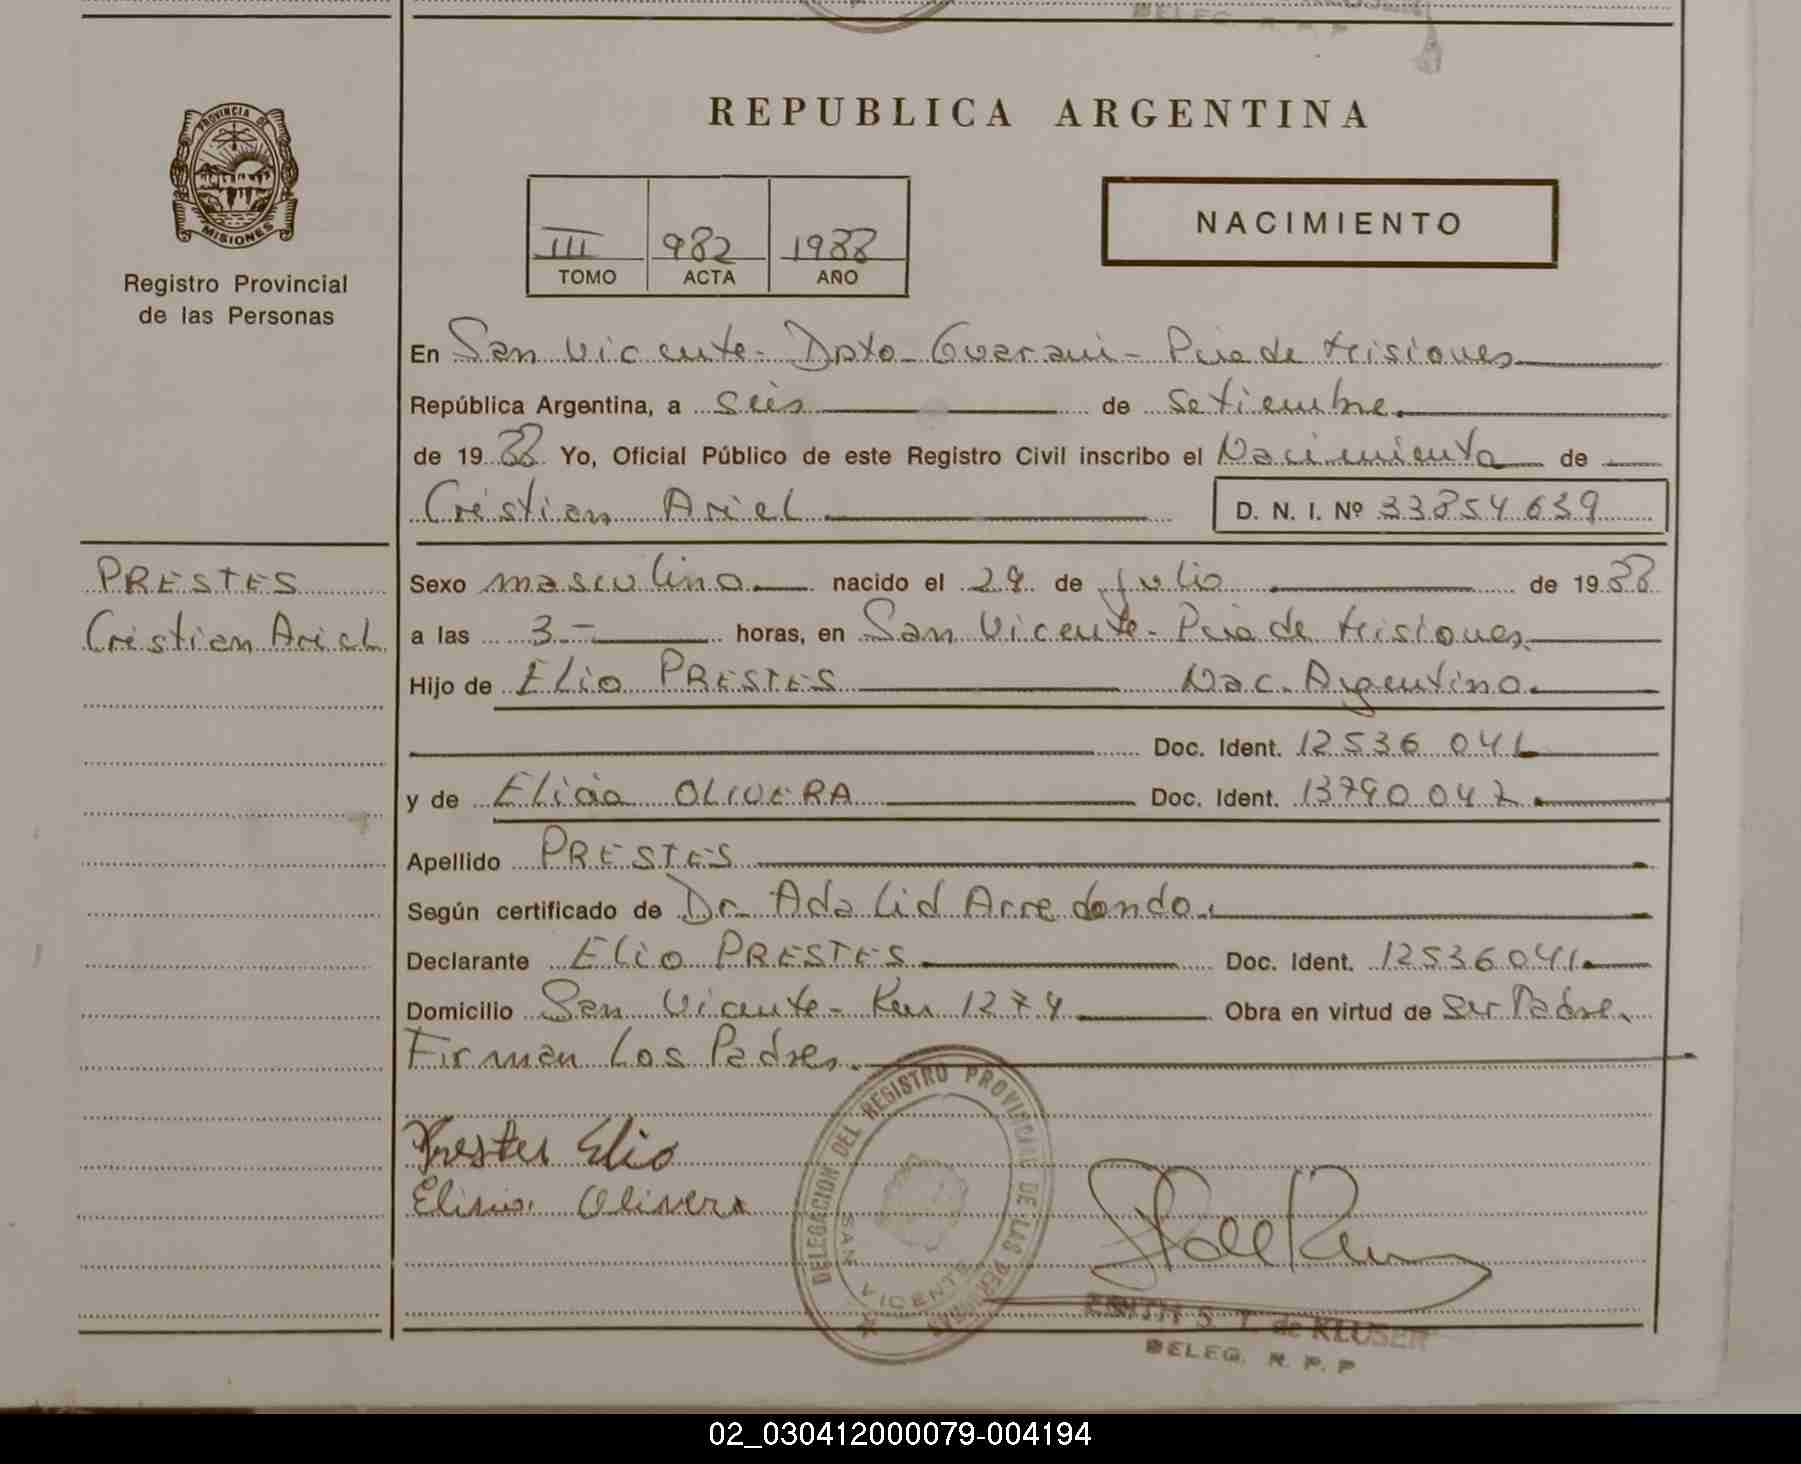 REPUBLICA ARGENTINA
PROVINCIA DE
MISIONES
Registro Provincial
de las Personas
III 982 1988
TOMO ACTA AÑO
NACIMIENTO
En San Vicente - Dpto Guarani - Pcia de Misiones
República Argentina, a seis de Setiembre
de 1988 Yo, Oficial Público de este Registro Civil inscribo el Nacimiento de
Cristian Ariel D. N. I. Nº 33854639
PRESTES
Cristian Ariel
Sexo masculino nacido el 29 de julio de 1988
a las 3.- horas, en San Vicente - Pcia de Misiones.
Hijo de Elio PRESTES Nac. Argentino.
Doc. Ident. 12536 041
y de OLIVERA Doc. Ident. 13790 047.
Apellido PRESTES
Según certificado de Dr. Adalid Arredondo.
Declarante Elio PRESTES Doc. Ident. 12536041.
Domicilio San Vicente - Km 1274 Obra en virtud de Ser Padre.
Firman Los Padres.
Prestes Elio
Olivera
DELEGACION DEL REGISTRO PROVINCIAL DE LAS PERSONAS
SAN VICENTE
S. T. de KLUSER
DELEG. R. P. P
02_030412000079-004194